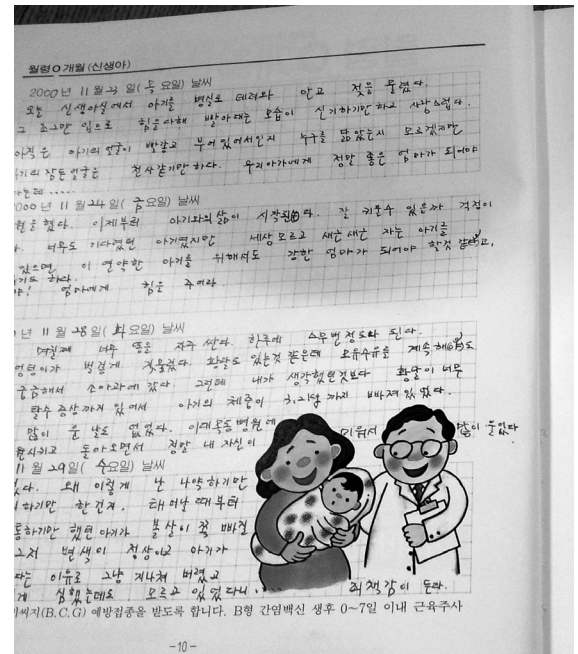 월령 0 개월 (신생아)
2000년 11월 23일(목요일) 날씨
오늘 신생아실에서 아기를 병실로 데려와 안고 젖을 물렸다.
그 조그만 입으로 힘을다해 빨아대는 모습이 신기하기만하고 사랑스럽다.
아직은 아기의얼굴이 빨갛고 부어있어서인지 누구를 닮았는지 모르겠지만
아기의 잠든얼굴은 천사같기만하다. 우리아가에게 정말 좋은 엄마가 되어야
하는데.....
000년 11월 24일(금요일) 날씨
원을 했다. 이제부터 아기와의삶이 시작된다. 잘 키울수 있을까 걱정이
다. 너무도 기다렸던 아기였지만 세상모르고 새근새근 자는 아기를
있으면 이 연약한 아기를 위해서도 강한 엄마가 되어야 할것 같다고,
기도 하다.
야! 엄마에게 힘을 주어라.
년 11월 28일(화요일) 날씨
며칠째 너무 똥을 자주 싼다. 하루에 스무번정도와 된다.
엉덩이가 벌겋게 짓물렀다. 황달도 있는것 같은데 모유수유를 계속해도
궁금해서 소아과에 갔다. 그런데 내가 생각했던것보다 황달이 너무
탈수 증상까지 있어서 아기의 체중이 3.2kg까지 빠져있었다.
많이 운 날도 없었다. 이대목동병원에
입원시키고 돌아오면서 정말 내 자신이 미워서 많이 울었다
11월 29일(수요일) 날씨
났다. 왜 이렇게 난 나약하기만
하기만 한건지. 태어날때부터
통하기만 했던아기가 볼살이 쪽 빠질
그저 변색이 정상이고 아기가
다는 이유로 그냥 지나쳐 버렸고
게 심했는데도 모르고 있었다니... 죄책감이 든다.
비씨지(B.C.G) 예방접종을 받도록 합니다. B형 간염백신 생후 0~7일 이내 근육주사
-10-